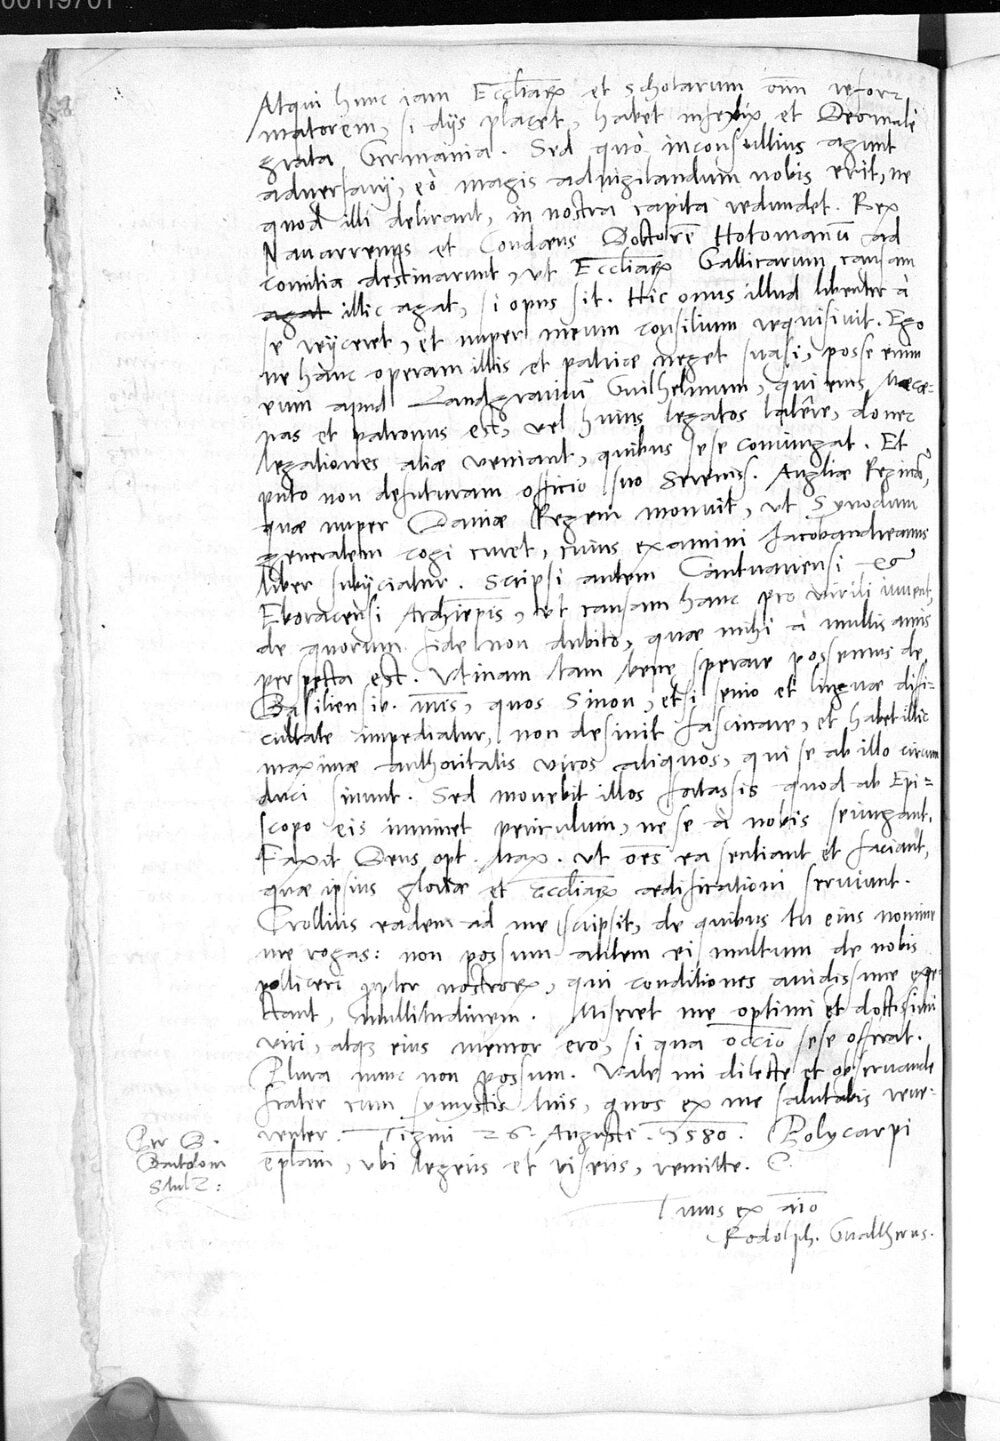 00119701
Atqui hunc iam Eccliarꝝ et scholarum om̄m refor⸗
matorem, si dijs placet, habet infelix et Deo malè
grata Germania. Sed quò inconsultius agunt
adversarij, eò magis advigilandum nobis erit, ne
quod illi delirant, in nostra capita redundet. Rex
Navarrenus et Condæus Doctorē Hotomanū ad
comitia destinarunt, ut Eccliarꝝ Gallicarum causam
agat illic agat, si opus sit. Hic onus illud libenter à
se reijceret, et nuper meum consilium requisivit. Ego
ne hanc operam illis et patriæ neget suasi, posse enim
eum apud Landgravium Guilhelmum, qui eius Mæce⸗
nas et patronus est, vel huius legatos latere, donec
legationes aliæ veniant, quibus sese coniungat. Et
puto non defuturam officio suo Sereniss. Angliæ Reginā,
quæ nuper Daniæ Regem monuit, ut Synodum
generalem cogi curet, cuius examini Jacobandreanus
liber subijciatur. Scripsi autem Cantuariensi et
Eboracensi Archiepis, ut causam hanc pro virili iuvent,
de quorum fide non dubito, quæ mihi à multis annis
perspecta est. Utinam tam bene sperare possemus de
Basiliensib. nr̄is, quos Sinon, etsi senio et linguæ difi⸗
cultate impediatur, non desinit fascinare, et habet illic
maximæ authoritatis viros aliquos, qui se ab illo circum
duci sinunt. Sed movebit illos fortassis quod ab Epi⸗
scopo eis imminet periculum, ne se à nobis seiungant.
Faxit Deus opt. Max. ut oēs ea sentiant et faciant,
quæ ipsius gloriæ et eccliarꝝ ædificationi serviant.
Crollius eadem ad me scripsit, de quibus tu eius nomine
me rogas: non possum autem ei multum de nobis
polliceri ꝓpter nostrorꝝ, qui conditiones avidissime expe⸗
ctant, multitudinem. Miseret me optimi et doctissimi
viri, atqꝫ eius memor ero, si qua occio sese offerat.
Plura nunc non possum. Vale mi dilecte et observande
frater cum symystis tuis, quos ex me salutabis reve⸗
renter. Tiguri 26. Augusti. 1580. Polycarpi
ep̄lam, ubi legeris et riseris, remitte.
Per D.
Bartolom
Stulz:
Tuus ex aīo
Rodolph. Gualtherus.